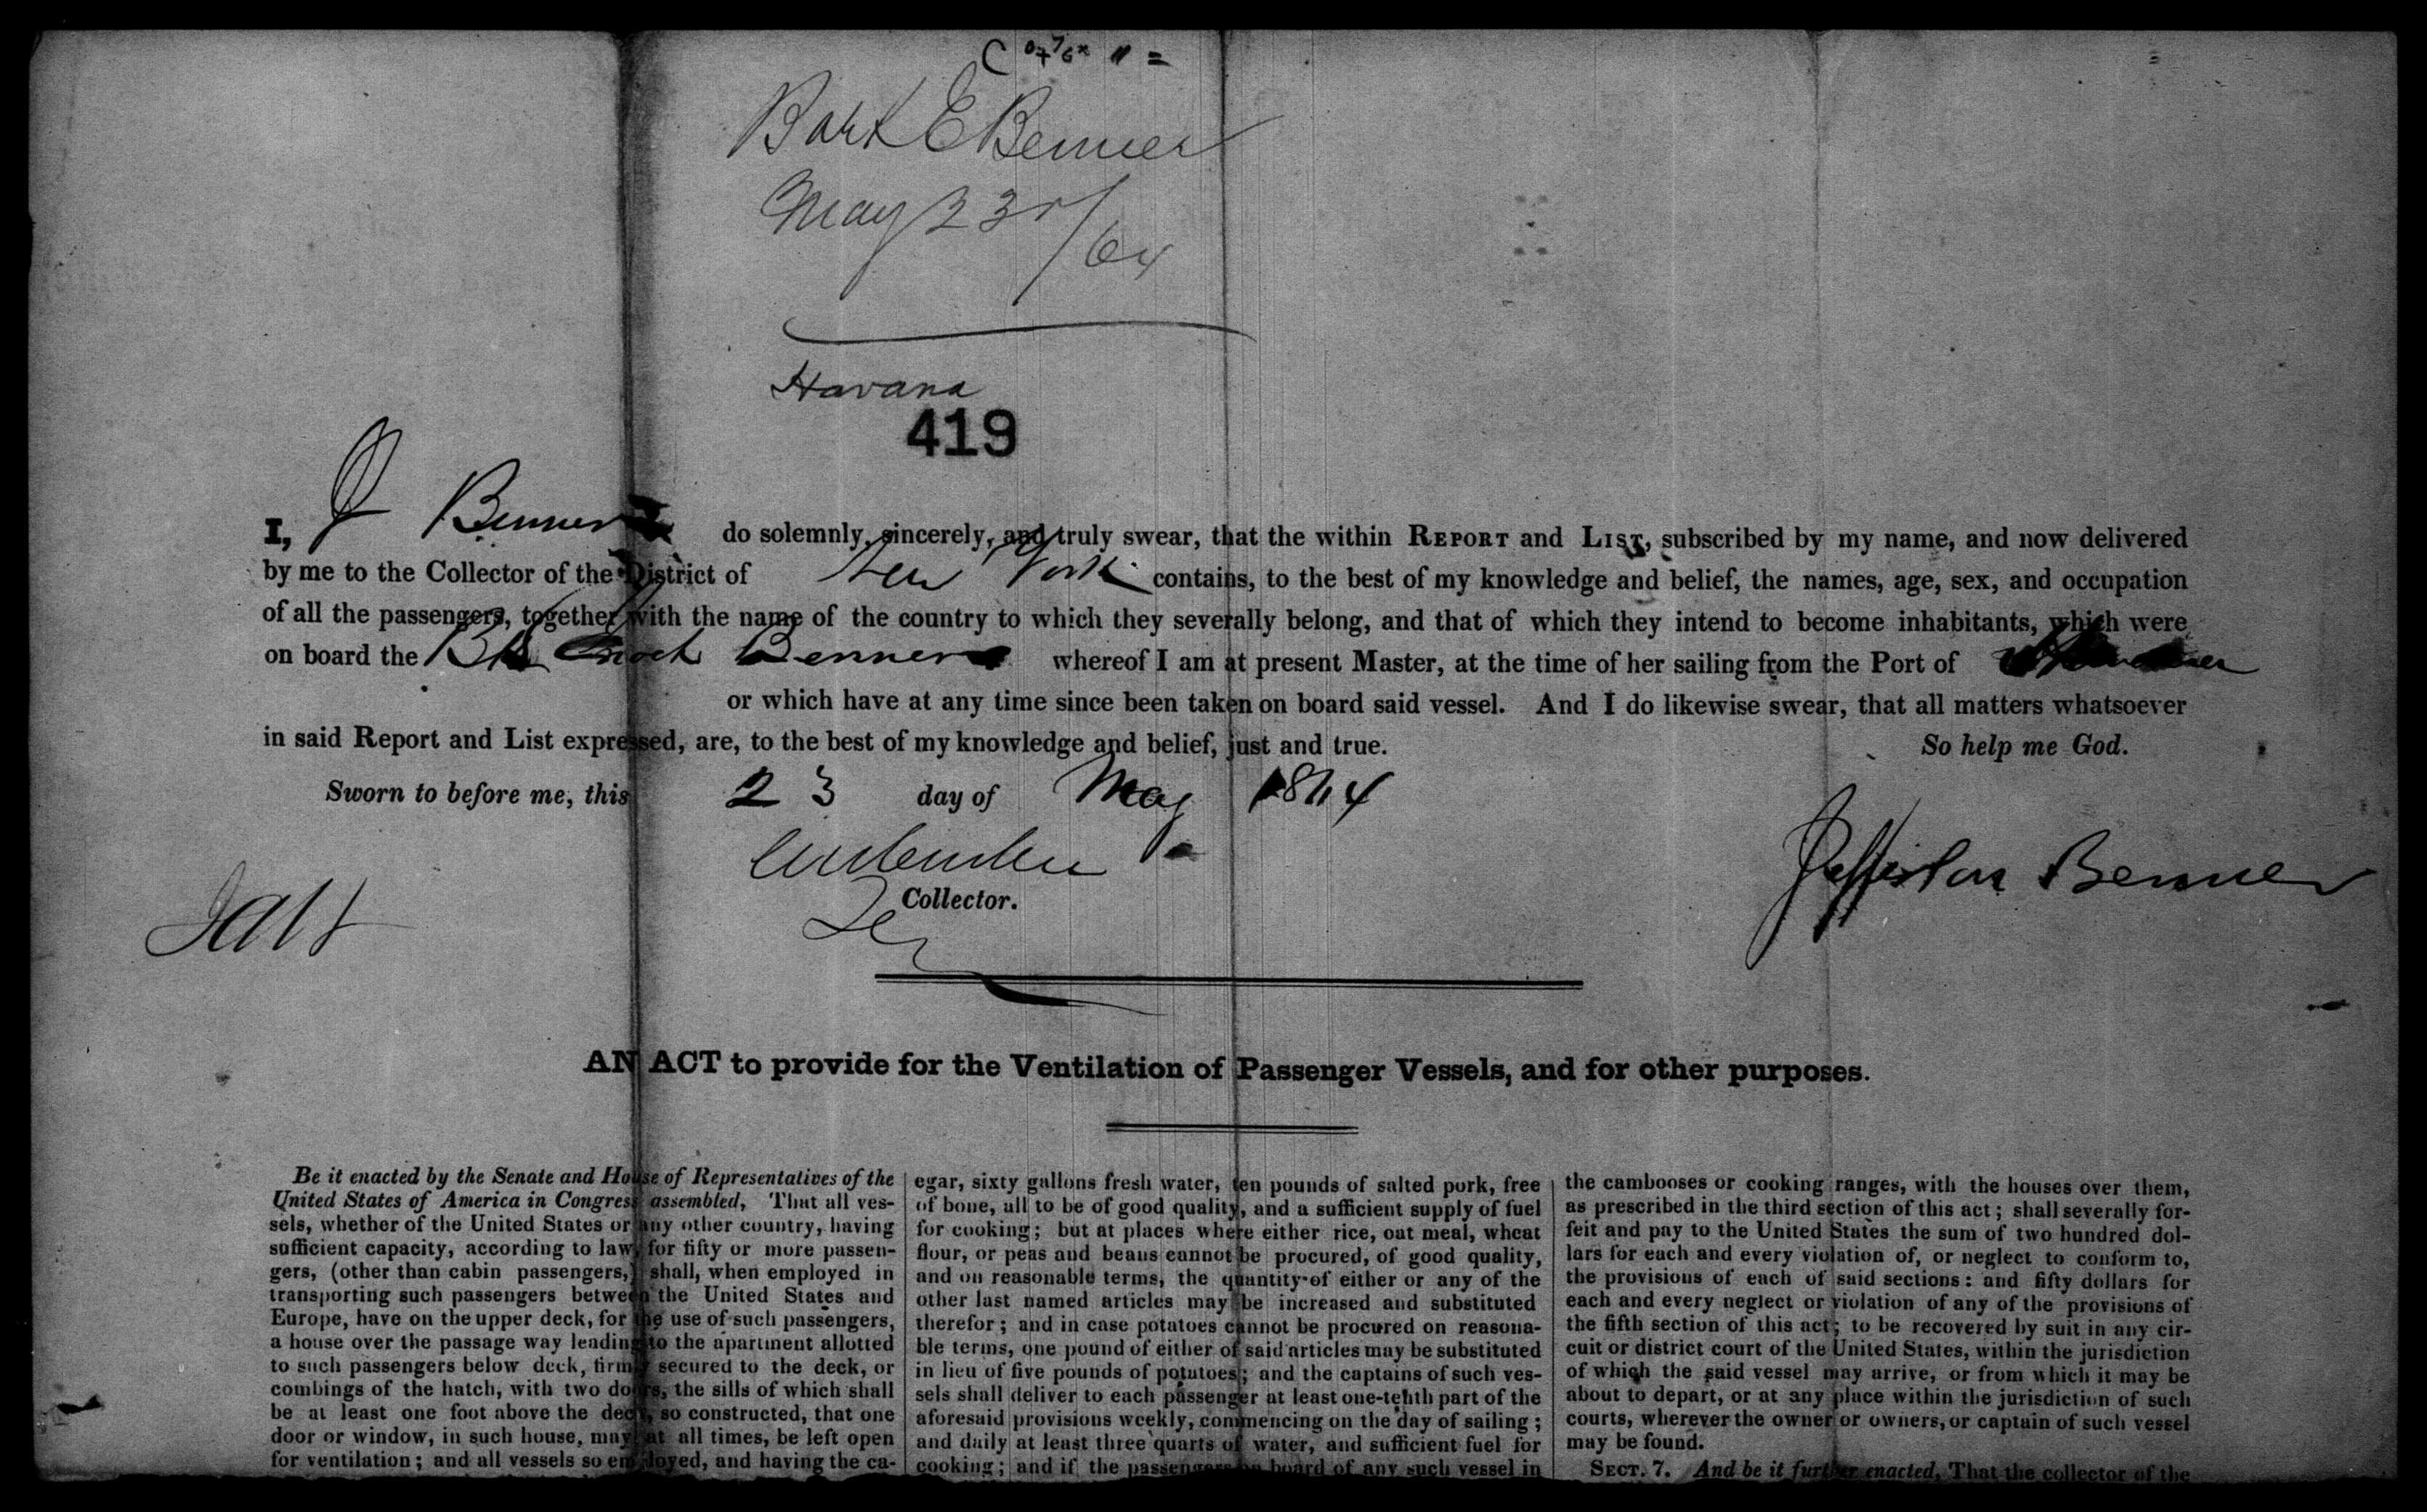 Bark E Benner
May 23d/64
Havana
419
I, J Benner do solemnly, sincerely, and truly swear, that the within REPORT and LIST, subscribed by my name, and now delivered
by me to the Collector of the District of New York contains, to the best of my knowledge and belief, the names, age, sex, and occupation
of all the passengers, together with the name of the country to which they severally belong, and that of which they intend to become inhabitants, which were
on board the Bk Enoch Benner whereof I am at present Master, at the time of her sailing from the Port of
or which have at any time since been taken on board said vessel. And I do likewise swear, that all matters whatsoever
in said Report and List expressed, are, to the best of my knowledge and belief, just and true. So help me God.
Sworn to before me, this 23 day of May 1864
Collector.
Benner
AN ACT to provide for the Ventilation of Passenger Vessels, and for other purposes.
Be it enacted by the Senate and House of Representatives of the
United States of America in Congress assembled, That all ves-
sels, whether of the United States or any other country, having
sufficient capacity, according to law, for fifty or more passen-
gers, (other than cabin passengers,) shall, when employed in
transporting such passengers between the United States and
Europe, have on the upper deck, for the use of such passengers,
a house over the passage way leading to the apartment allotted
to such passengers below deck, firmly secured to the deck, or
combings of the hatch, with two doors, the sills of which shall
be at least one foot above the deck, so constructed, that one
door or window, in such house, may at all times, be left open
for ventilation; and all vessels so employed, and having the ca-
egar, sixty gallons fresh water, ten pounds of salted pork, free
of bone, all to be of good quality, and a sufficient supply of fuel
for cooking; but at places where either rice, oat meal, wheat
flour, or peas and beans cannot be procured, of good quality,
and on reasonable terms, the quantity of either or any of the
other last named articles may be increased and substituted
therefor; and in case potatoes cannot be procured on reasona-
ble terms, one pound of either of said articles may be substituted
in lieu of five pounds of potatoes; and the captains of such ves-
sels shall deliver to each passenger at least one-tenth part of the
aforesaid provisions weekly, commencing on the day of sailing;
and daily at least three quarts of water, and sufficient fuel for
cooking; and if the passengers on board of any such vessel in
the cambooses or cooking ranges, with the houses over them,
as prescribed in the third section of this act; shall severally for-
feit and pay to the United States the sum of two hundred dol-
lars for each and every violation of, or neglect to conform to,
the provisions of each of said sections: and fifty dollars for
each and every neglect or violation of any of the provisions of
the fifth section of this act; to be recovered by suit in any cir-
cuit or district court of the United States, within the jurisdiction
of which the said vessel may arrive, or from which it may be
about to depart, or at any place within the jurisdiction of such
courts, wherever the owner or owners, or captain of such vessel
may be found.
SECT. 7. And be it further enacted, That the collector of the